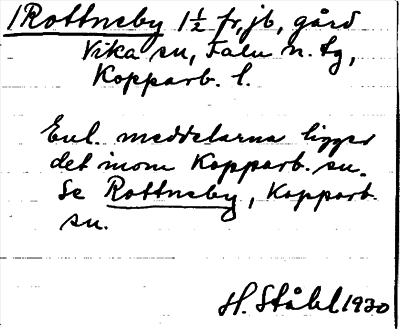 1 Rottneby 1½ fr, jb, gård
Vika sn, Falu n. tg,
Kopparb. l.
Enl. meddelarna ligger
det inom Kopparb. sn.
Se Rottneby, Kopparb.
sn.
H. Ståhl 1930